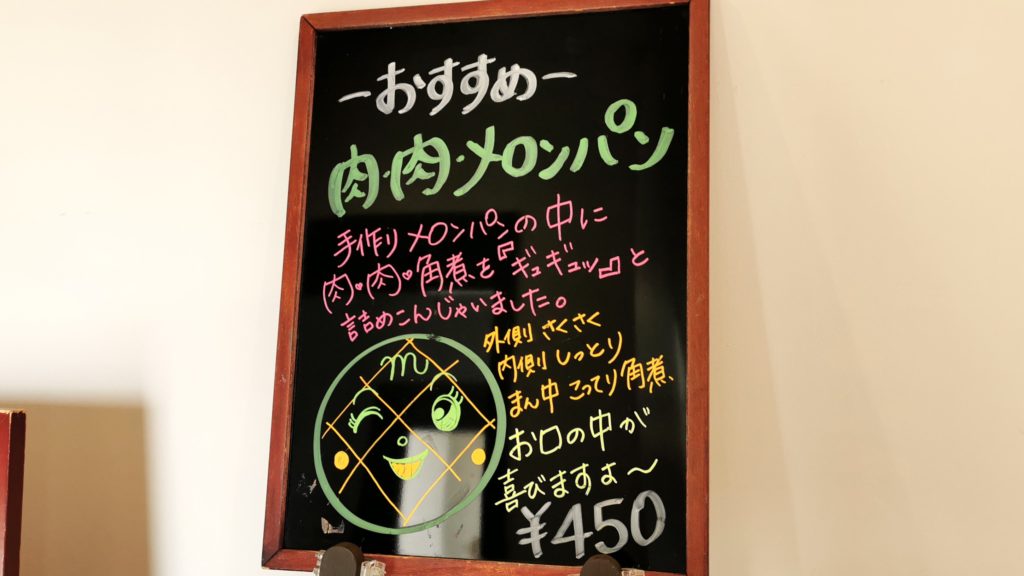 －おすすめ－
肉・肉・メロンパン
手作りメロンパンの中に
肉♥肉♥角煮を『ギュギュッ』と
詰めこんじゃいました。
外側 さくさく
内側 しっとり
まん中 こってり角煮、
お口の中が
喜びますよ～
m
¥450